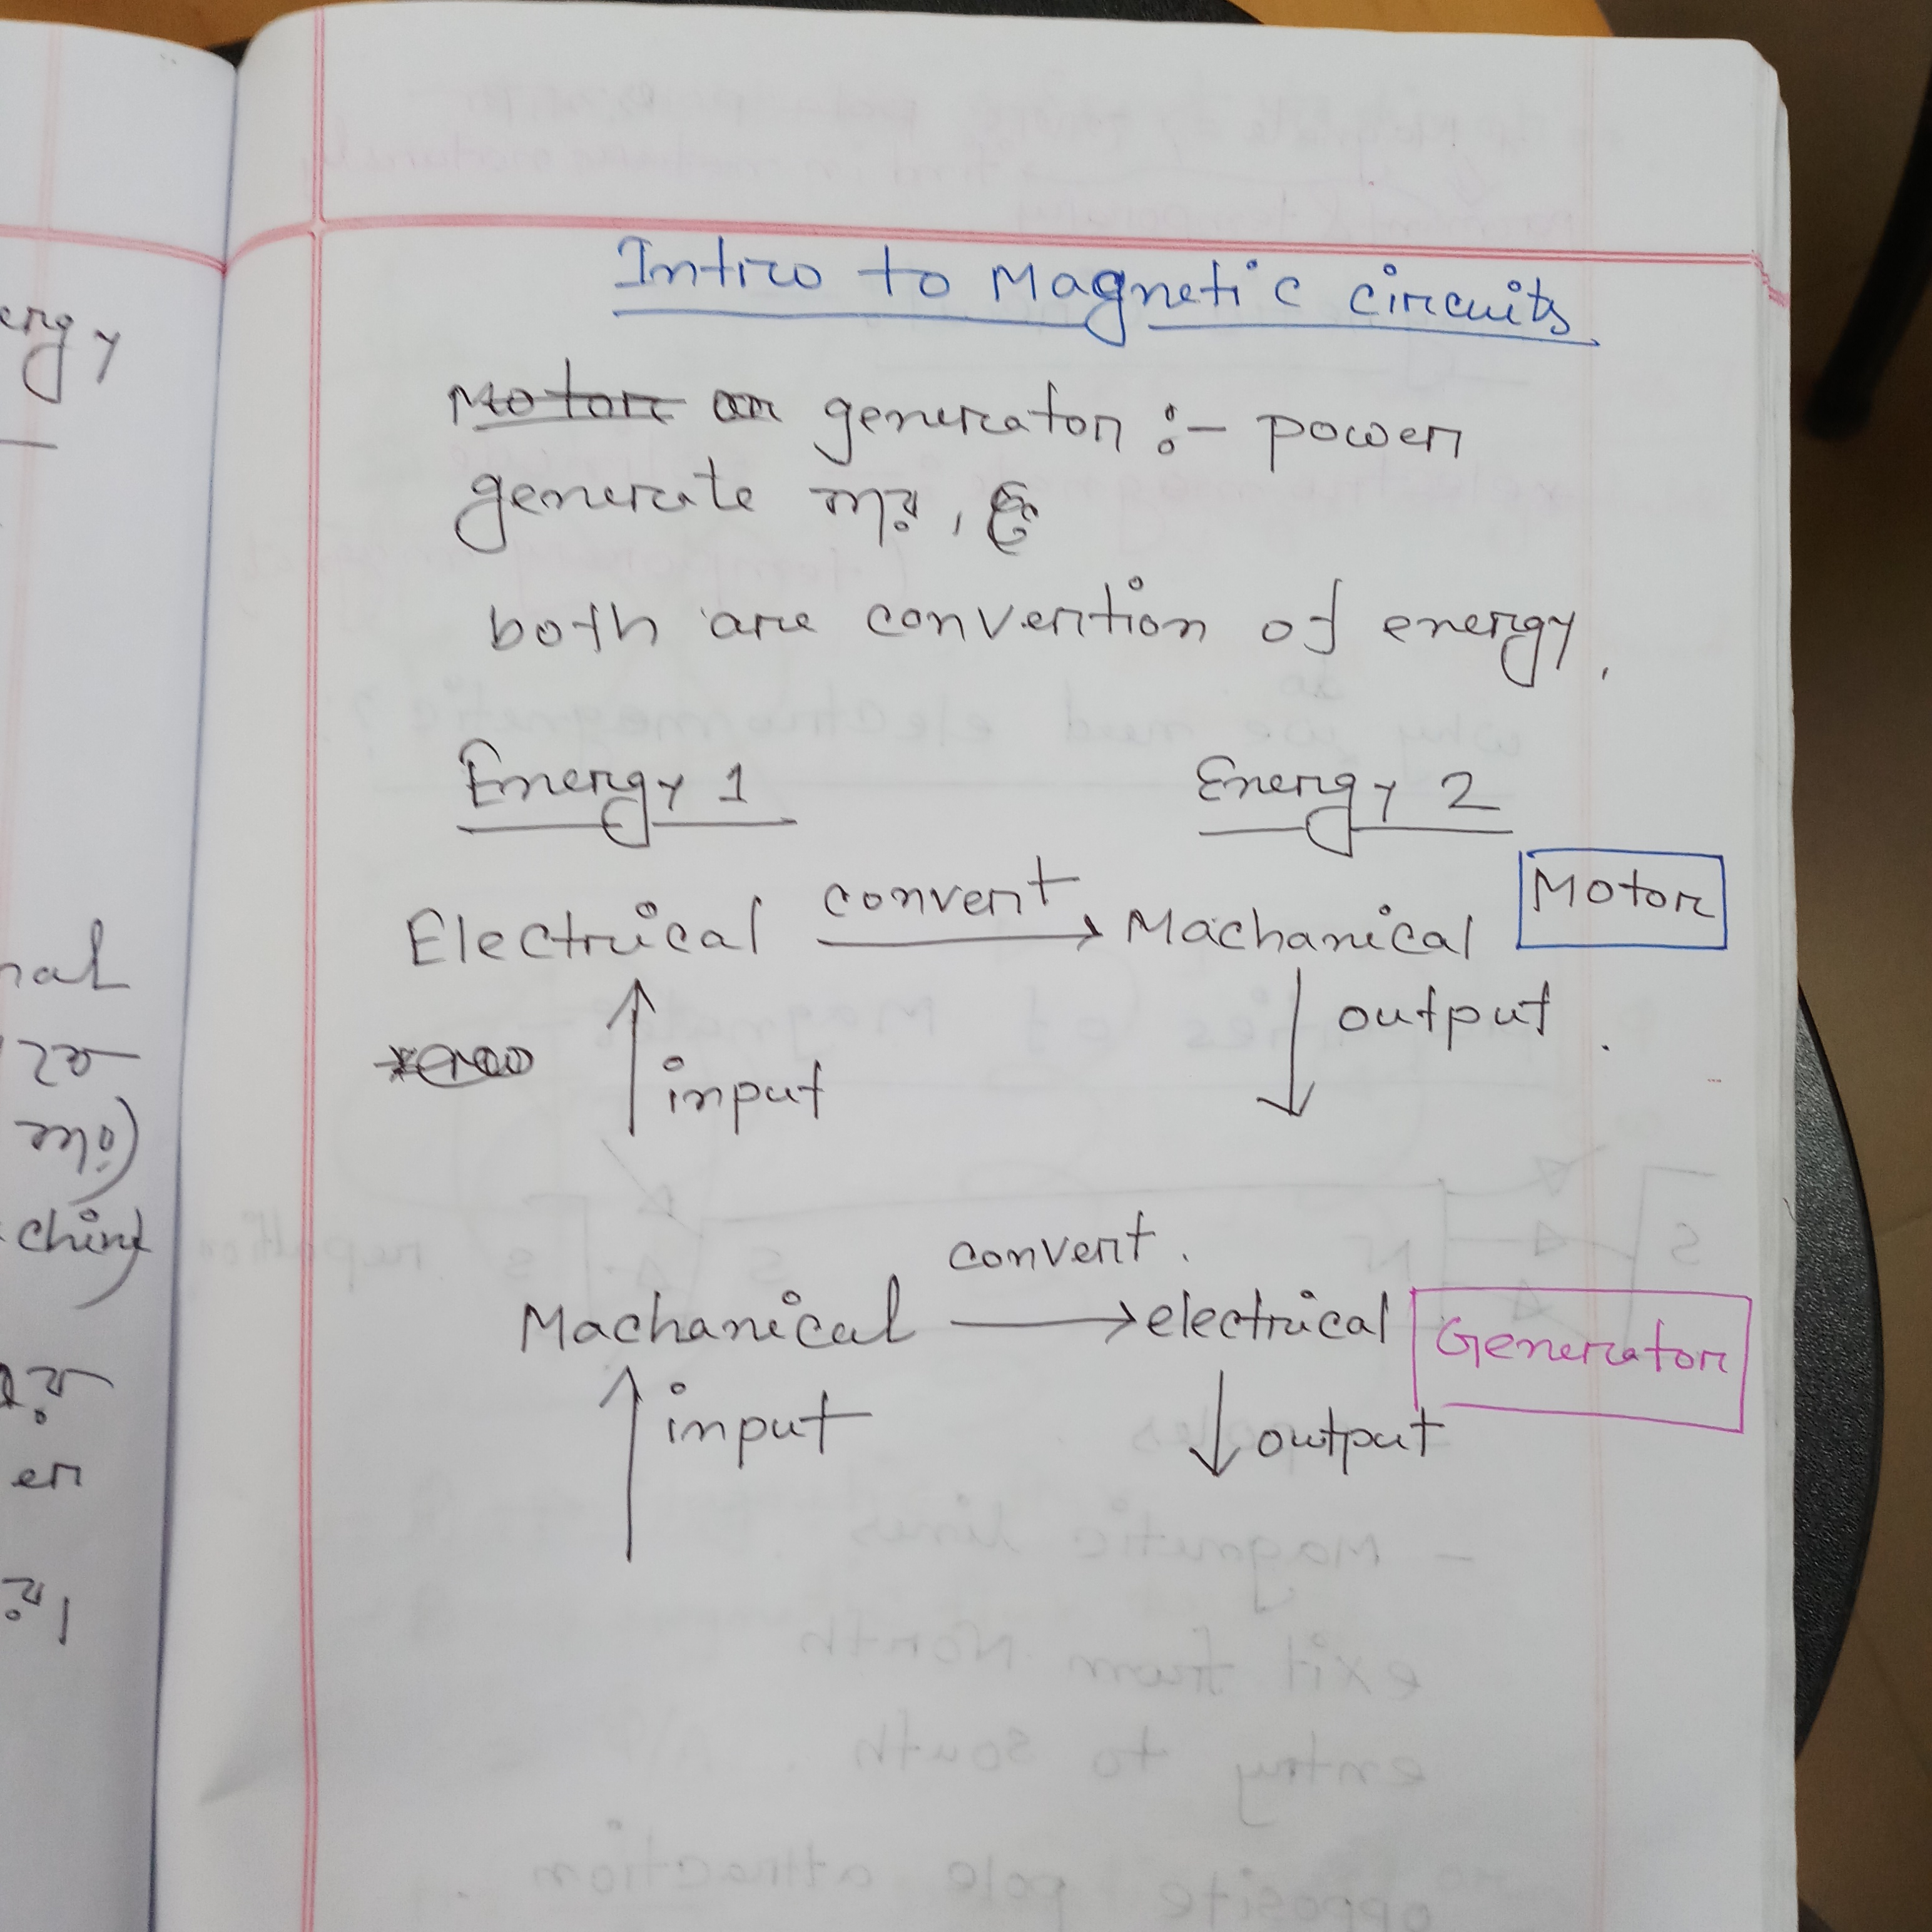 Intro to Magnetic circuits
generator :- power
generate
both are convertion of energy.
Energy 1 Energy 2
Electrical convert → Machanical Motor
↑ input ↓ output.
Machanical convert. → electrical Generator
↑ input ↓ output